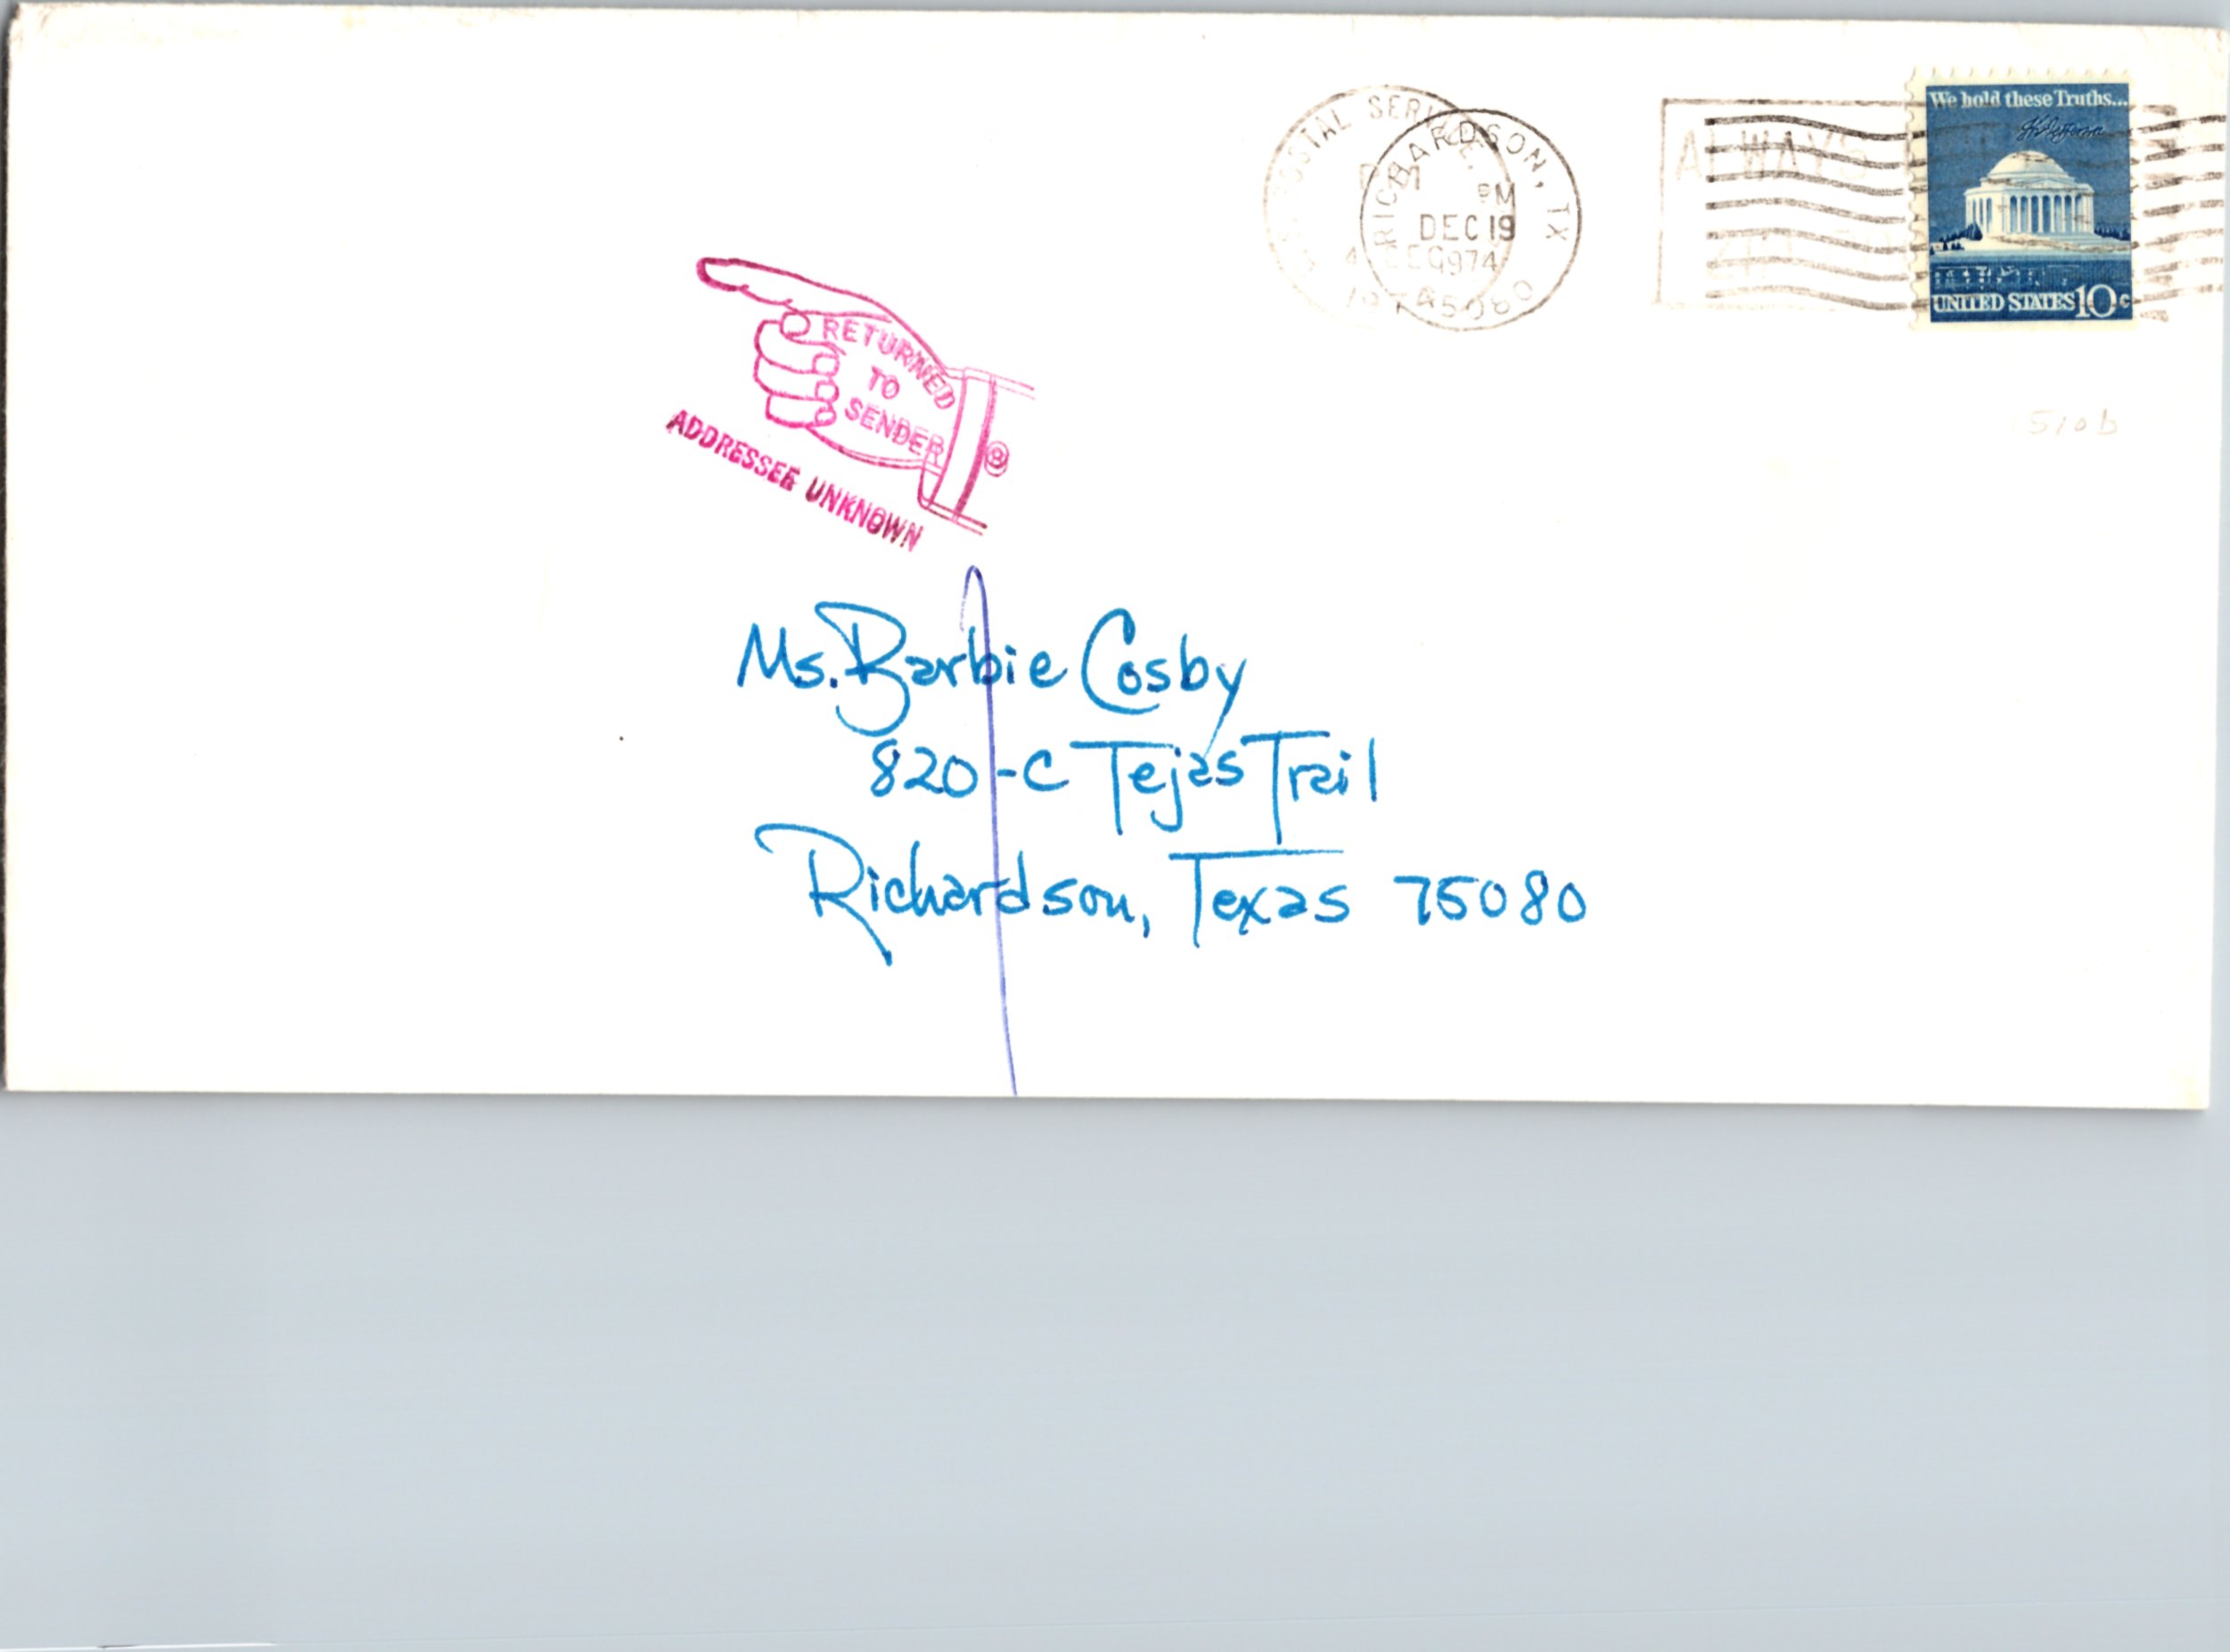 POSTAL SERVICE
RICHARDSON, TX
PM
DEC 19
1974
75080
ALWAYS
We hold these Truths...
UNITED STATES 10c
1510b
RETURNED
TO
SENDER
ADDRESSEE UNKNOWN
Ms. Barbie Cosby
820-C Tejas Trail
Richardson, Texas 75080